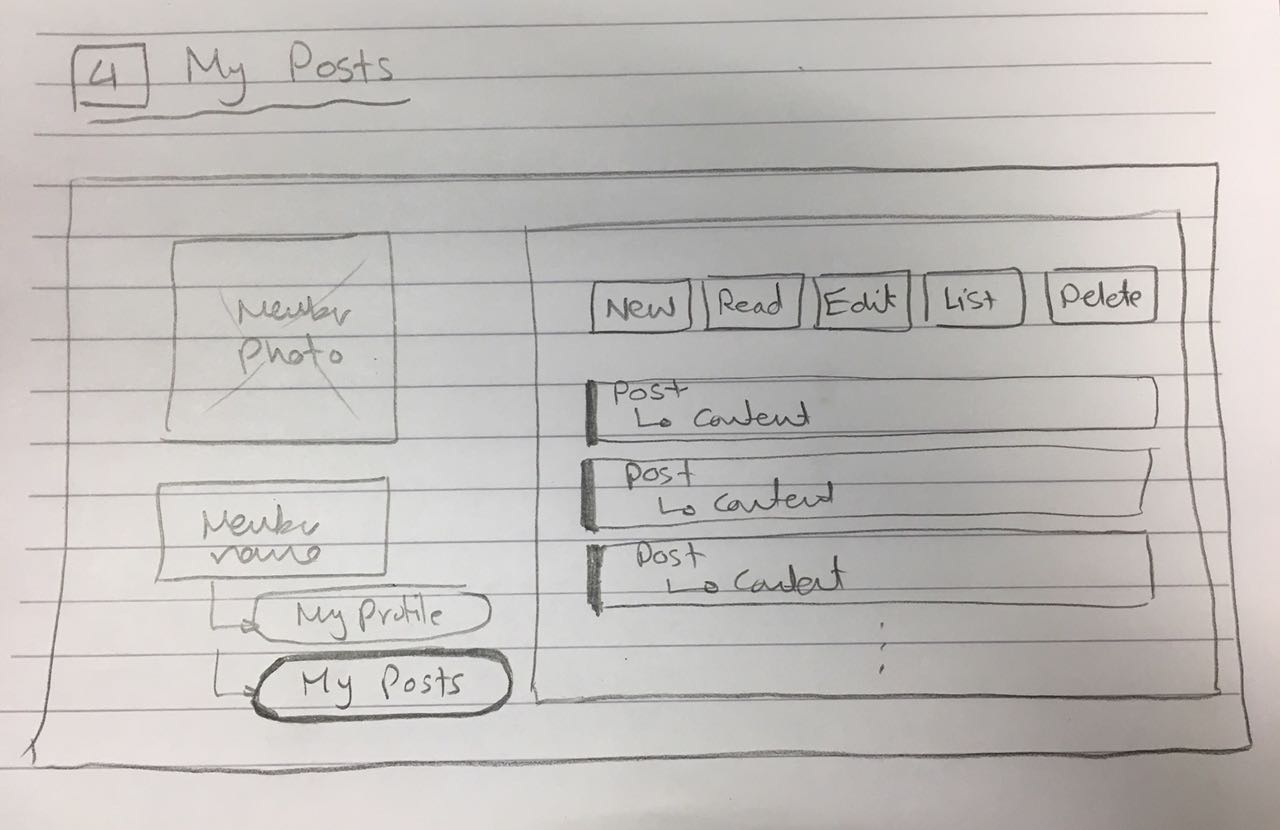 4 My Posts
Member
Photo
Member
name
My Profile
My Posts
New Read Edit List Delete
Post
Content
Post
Content
Post
Content